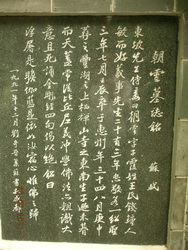 朝雲墓誌銘 蘇軾
東坡先生侍妾曰朝雲字子霞姓王氏錢塘人
敏而好義事先生二十有三年忠敬若一紹聖
三年七月壬辰卒于惠州年三十四八月庚申
葬之豐湖之上栖禪山寺之東南生子遯未朞
而夭蓋常從比丘尼義沖學佛法亦粗識大
意且死誦金剛經四句偈以絕銘曰
浮屠是瞻伽藍是依如汝宿心惟佛之歸
一九九一年十二月